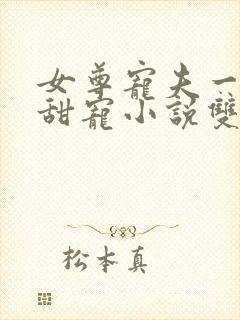 女尊寵夫一
甜寵小說雙
松本真